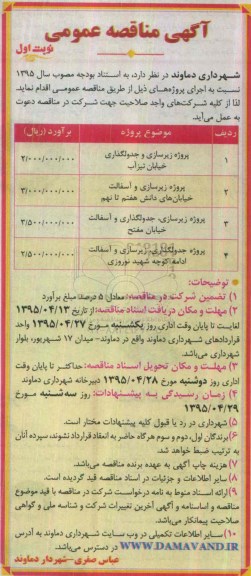 آگهی مناقصه عمومی
نوبت اول
شهرداری دماوند در نظر دارد، به استناد بودجه مصوب سال ۱۳۹۵
نسبت به اجرای پروژه‌های ذیل از طریق مناقصه عمومی اقدام نماید.
لذا از کلیه شرکت‌های واجد صلاحیت جهت شرکت در مناقصه دعوت
به عمل می‌آید.
ردیف موضوع پروژه برآورد (ریال)
۱ پروژه زیرسازی و جدولگذاری خیابان تیزآب ۲/۰۰۰/۰۰۰/۰۰۰
۲ پروژه زیرسازی و آسفالت خیابان‌های دانش هفتم تا نهم ۳/۰۰۰/۰۰۰/۰۰۰
۳ پروژه زیرسازی، جدولگذاری و آسفالت خیابان مفتح ۳/۵۰۰/۰۰۰/۰۰۰
۴ پروژه جدولگذاری، زیرسازی و آسفالت ادامه کوچه شهید نوروزی ۲/۵۰۰/۰۰۰/۰۰۰
توضیحات:
۱) تضمین شرکت در مناقصه: معادل ۵ درصد مبلغ برآورد
۲) مهلت و مکان دریافت اسناد مناقصه: از تاریخ ۱۳۹۵/۰۴/۱۳
لغایت تا پایان وقت اداری روز یکشنبه مورخ ۱۳۹۵/۰۴/۲۷ واحد
قراردادهای شهرداری دماوند واقع در دماوند- میدان ۱۷ شهریور، بلوار
شهرداری می‌باشد.
۳) مهلت و مکان تحویل اسناد مناقصه: حداکثر تا پایان وقت
اداری روز دوشنبه مورخ ۱۳۹۵/۰۴/۲۸ دبیرخانه شهرداری دماوند
۴) زمان رسیدگی به پیشنهادات: روز سه‌شنبه مورخ
۱۳۹۵/۰۴/۲۹
۵) شهرداری در رد یا قبول کلیه پیشنهادات مختار است.
۶) برندگان اول، دوم و سوم هرگاه حاضر به انعقاد قرارداد نشوند، سپرده آنان
به ترتیب ضبط خواهد شد.
۷) هزینه چاپ آگهی به عهده برنده مناقصه می‌باشد.
۸) سایر اطلاعات و جزئیات در اسناد مناقصه قید گردیده است.
۹) ارائه اسناد منوط به نامه درخواست شرکت در مناقصه با قید موضوع
مناقصه و اساسنامه و آگهی آخرین تغییرات شرکت و شناسه ملی و گواهی
صلاحیت پیمانکار می‌باشد.
۱۰) سایر اطلاعات تکمیلی در وب سایت شهرداری دماوند به آدرس
WWW.DAMAVAND.IR در دسترس می‌باشد.
عباس صفری – شهردار دماوند